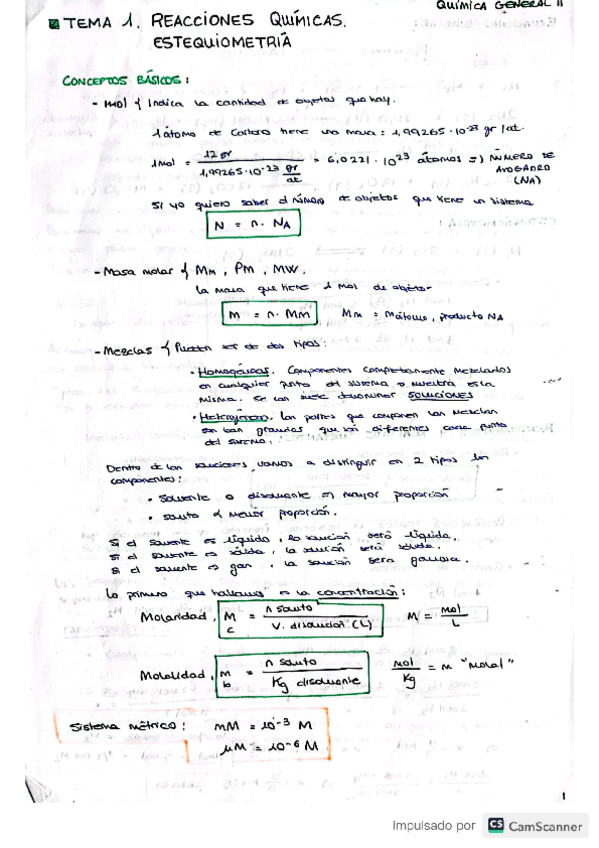 QUÍMICA GENERAL II
TEMA 1. REACCIONES QUÍMICAS.
ESTEQUIOMETRÍA
CONCEPTOS BÁSICOS:
- mol { Indica la cantidad de objetos que hay.
1 átomo de Carbono tiene una masa = 1,99265·10⁻²³ gr/at.
1mol = 12 gr / 1,99265·10⁻²³ gr/at = 6,0221·10²³ átomos => NÚMERO DE AVOGADRO (NA)
Si yo quiero saber el número de objetos que tiene un sistema
N = n· NA
- Masa molar { Mm, Pm, MW.
la masa que tiene 1 mol de objeto-
m = n· Mm Mm = mátomo, producto NA
- Mezclas { Pueden ser de dos tipos:
· Homogéneas. Componentes completamente mezclados
en cualquier punto del sistema o muestra es la
misma. Se las suele denominar SOLUCIONES
· Heterogéneas. Las partes que componen las mezclas
son tan grandes que son diferentes cada punto
del sistema.
Dentro de las soluciones vamos a distinguir en 2 tipos los
componentes:
· Solvente o disolvante => mayor proporción
· soluto { menor proporción.
Si el solvente es líquido, la solución será líquida.
Si el solvente es sólido, la solución será sólida.
Si el solvente es gas, la solución será gaseosa.
Lo primero que hallamos es la concentración:
Molaridad, M c = n soluto / V. disolución (L) M = mol / L
Molalidad, m b = n soluto / Kg disolvante mol / Kg = m "molal"
Sistema métrico: mM = 10⁻³ M
μM = 10⁻⁶ M
1
Impulsado por CS CamScanner